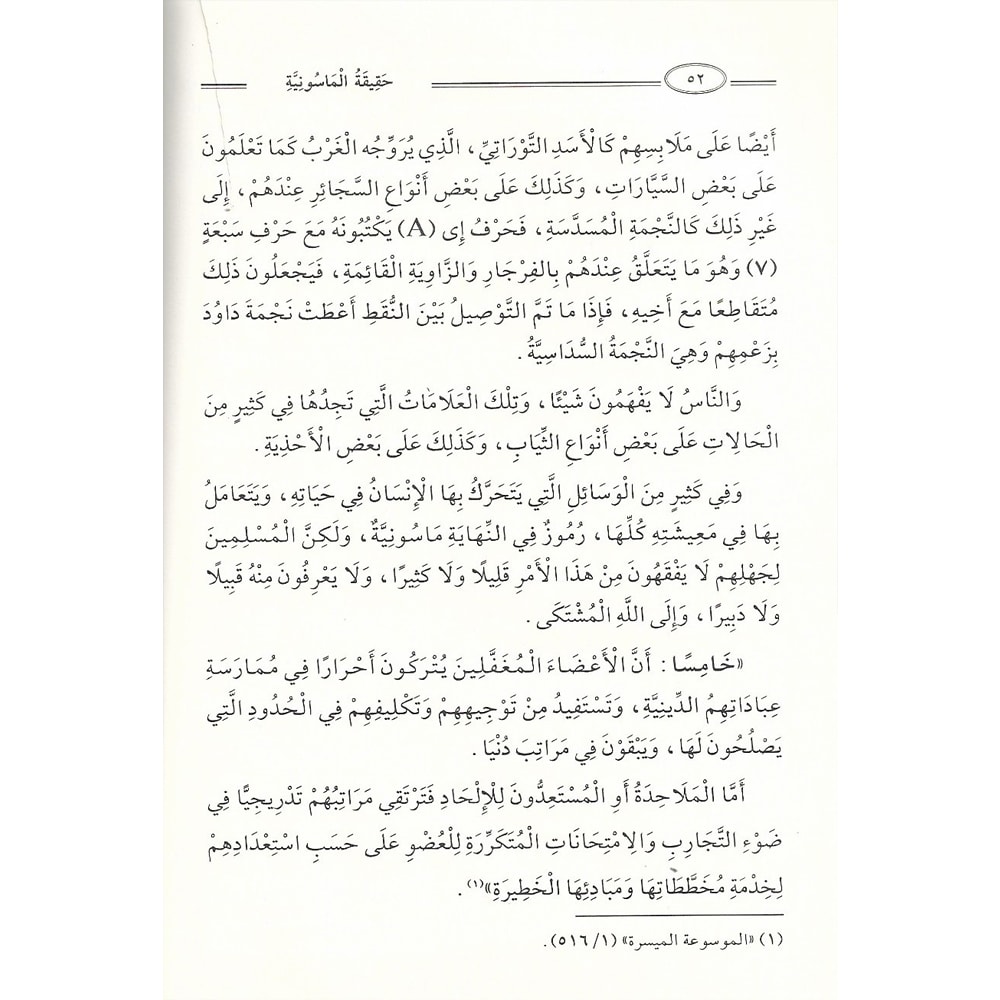 ٥٢
حَقِيقَةُ الْمَاسُونِيَّةِ
أَيْضًا عَلَى مَلَابِسِهِمْ كَالْأَسَدِ التَّوْرَاتِيِّ، الَّذِي يُرَوِّجُه الْغَرْبُ كَمَا تَعْلَمُونَ
عَلَى بَعْضِ السَّيَّارَاتِ، وَكَذَلِكَ عَلَى بَعْضِ أَنْوَاعِ السَّجَائِرِ عِنْدَهُمْ، إِلَى
غَيْرِ ذَلِكَ كَالنَّجْمَةِ الْمُسَدَّسَةِ، فَحَرْفُ إِى (A) يَكْتُبُونَهُ مَعَ حَرْفِ سَبْعَةٍ
(٧) وَهُوَ مَا يَتَعَلَّقُ عِنْدَهُمْ بِالفِرْجَارِ وَالزَّاوِيَةِ الْقَائِمَةِ، فَيَجْعَلُونَ ذَلِكَ
مُتَقَاطِعًا مَعَ أَخِيهِ، فَإِذَا مَا تَمَّ التَّوْصِيلُ بَيْنَ النُّقَطِ أَعْطَتْ نَجْمَةَ دَاوُدَ
بِزَعْمِهِمْ وَهِيَ النَّجْمَةُ السُّدَاسِيَّةُ.
وَالنَّاسُ لَا يَفْهَمُونَ شَيْئًا، وَتِلْكَ الْعَلَامَاتُ الَّتِي تَجِدُهَا فِي كَثِيرٍ مِنَ
الْحَالِاتِ عَلَى بَعْضِ أَنْوَاعِ الثِّيَابِ، وَكَذَلِكَ عَلَى بَعْضِ الْأَحْذِيَةِ.
وَفِي كَثِيرٍ مِنَ الْوَسَائِلِ الَّتِي يَتَحَرَّكُ بِهَا الْإِنْسَانُ فِي حَيَاتِهِ، وَيَتَعَامَلُ
بِهَا فِي مَعِيشَتِهِ كُلِّهَا، رُمُوزٌ فِي النِّهَايَةِ مَاسُونِيَّةٌ، وَلَكِنَّ الْمُسْلِمِينَ
لِجَهْلِهِمْ لَا يَفْقَهُونَ مِنْ هَذَا الْأَمْرِ قَلِيلًا وَلَا كَثِيرًا، وَلَا يَعْرِفُونَ مِنْهُ قَبِيلًا
وَلَا دَبِيرًا، وَإِلَى اللَّهِ الْمُشْتَكَى.
«خَامِسًا: أَنَّ الْأَعْضَاءَ الْمُغَفَّلِينَ يُتْرَكُونَ أَحْرَارًا فِي مُمَارَسَةِ
عِبَادَاتِهِمُ الدِّينِيَّةِ، وَتَسْتَفِيدُ مِنْ تَوْجِيهِهِمْ وَتَكْلِيفِهِمْ فِي الْحُدُودِ الَّتِي
يَصْلُحُونَ لَهَا، وَيَبْقَوْنَ فِي مَرَاتِبَ دُنْيَا.
أَمَّا الْمَلَاحِدَةُ أَوِ الْمُسْتَعِدُّونَ لِلْإِلْحَادِ فَتَرْتَقِي مَرَاتِبُهُمْ تَدْرِيجِيًّا فِي
ضَوْءِ التَّجَارِبِ وَالِامْتِحَانَاتِ الْمُتَكَرِّرَةِ لِلْعُضْوِ عَلَى حَسَبِ اسْتِعْدَادِهِمْ
لِخِدْمَةِ مُخَطَّطَاتِهَا وَمَبَادِئِهَا الْخَطِيرَةِ»(١).
(١) «الموسوعة الميسرة» (١/ ٥١٦).